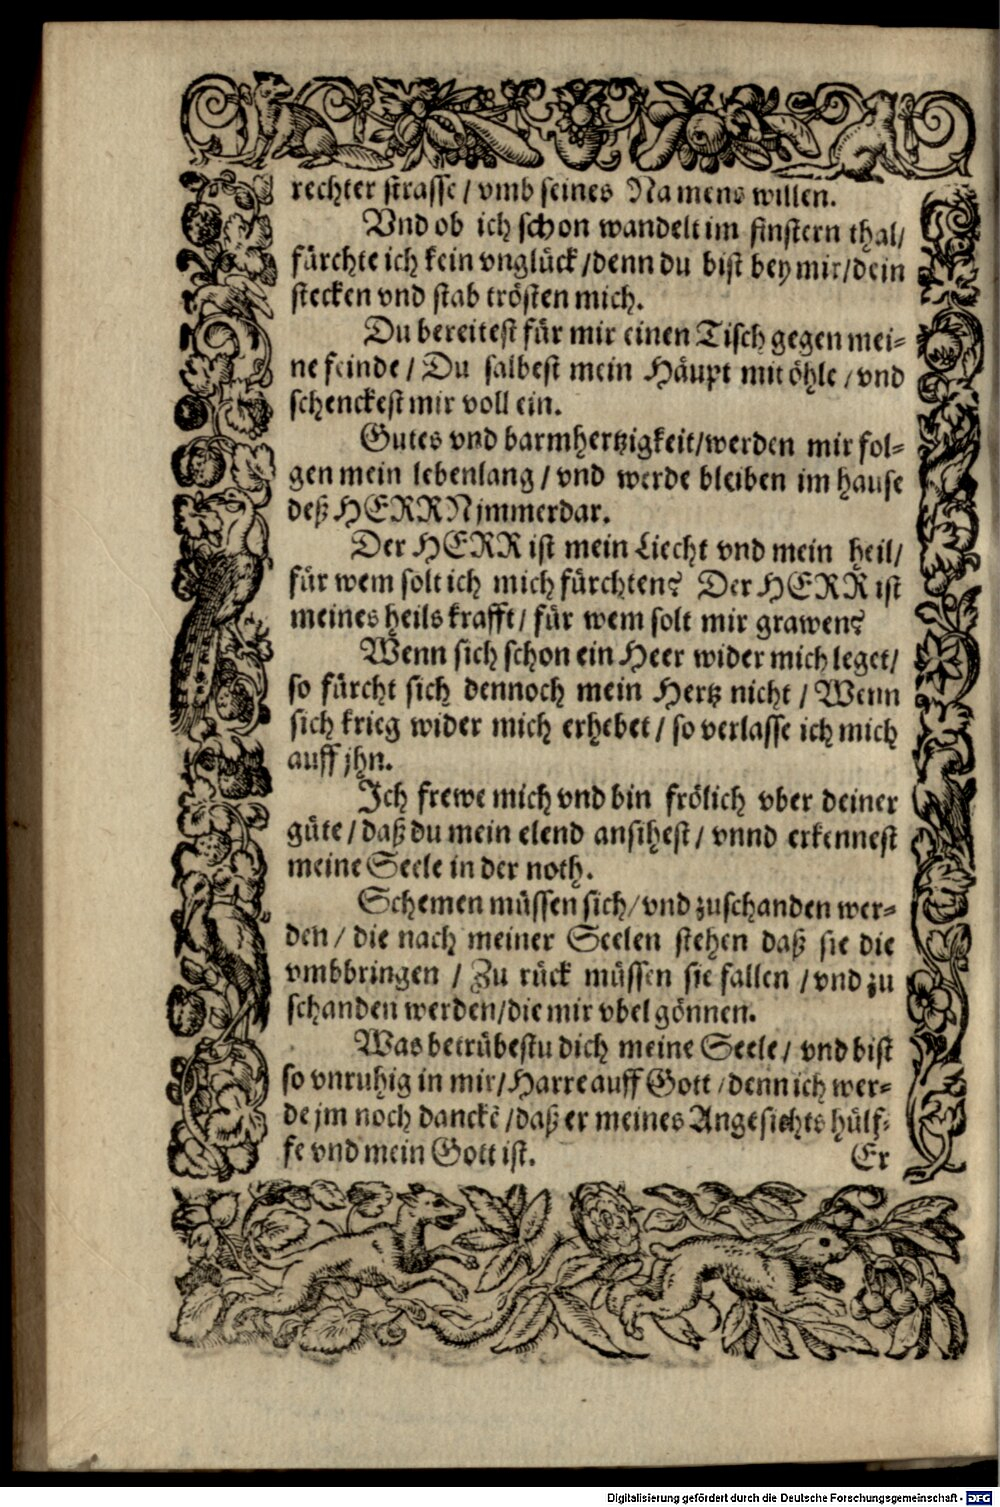 rechter strasse / vmb seines Namens willen.
Vnd ob ich schon wandelt im finstern thal/
fürchte ich kein vnglück / denn du bist bey mir / dein
stecken vnd stab trösten mich.
Du bereitest für mir einen Tisch gegen mei-
ne feinde / Du salbest mein Häupt mit öhle / vnd
schenckest mir voll ein.
Gutes vnd barmhertzigkeit/werden mir fol-
gen mein lebenlang / vnd werde bleiben im hause
deß HERRN jmmerdar.
Der HERR ist mein Liecht vnd mein heil/
für wem solt ich mich fürchten? Der HERR ist
meines heils krafft / für wem solt mir grawen?
Wenn sich schon ein Heer wider mich leget/
so fürcht sich dennoch mein Hertz nicht / Wenn
sich krieg wider mich erhebet / so verlasse ich mich
auff jhn.
Ich frewe mich vnd bin frölich vber deiner
güte / daß du mein elend ansihest / vnnd erkennest
meine Seele in der noth.
Schemen müssen sich / vnd zuschanden wer-
den / die nach meiner Seelen stehen daß sie die
vmbbringen / Zu rück müssen sie fallen / vnd zu
schanden werden/die mir vbel gönnen.
Was betrübestu dich meine Seele / vnd bist
so vnruhig in mir / Harre auff Gott / denn ich wer-
de jm noch danckẽ / daß er meines Angesichts hülf-
fe vnd mein Gott ist.
Er
Digitalisierung gefördert durch die Deutsche Forschungsgemeinschaft - DFG